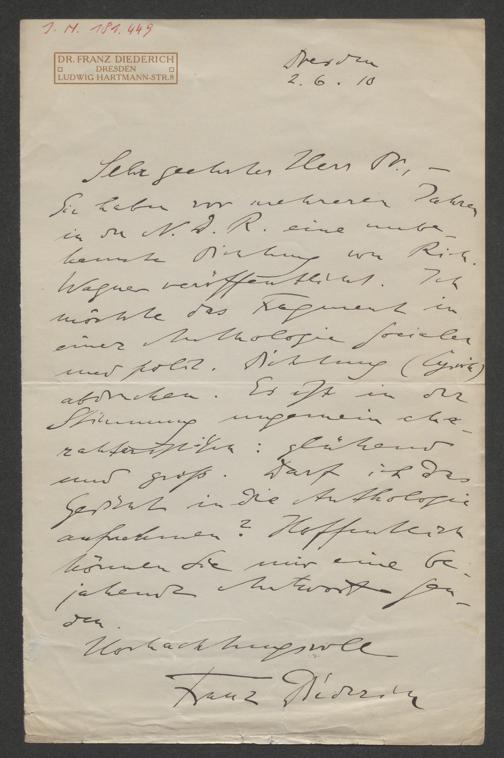 I. N. 181.449
DR. FRANZ DIEDERICH
DRESDEN
LUDWIG HARTMANN-STR. 8
Dresden
2. 6. 10
Sehr geehrter Herr Dr., –
Sie haben vor mehreren Jahren
in der N. D. R. eine unbe-
kannte Dichtung von Rich.
Wagner veröffentlicht. Ich
möchte das Fragment in
einer Anthologie socialer
und polit. Dichtung (Lyrik)
abdrucken. Es ist in der
Stimmung ungemein cha-
rakteristisch: glühend
und groß. Darf ich das
Gedicht in die Anthologie
aufnehmen? Hoffentlich
können Sie mir eine be-
jahende Antwort sen-
den.
Hochachtungsvoll
Franz Diederich